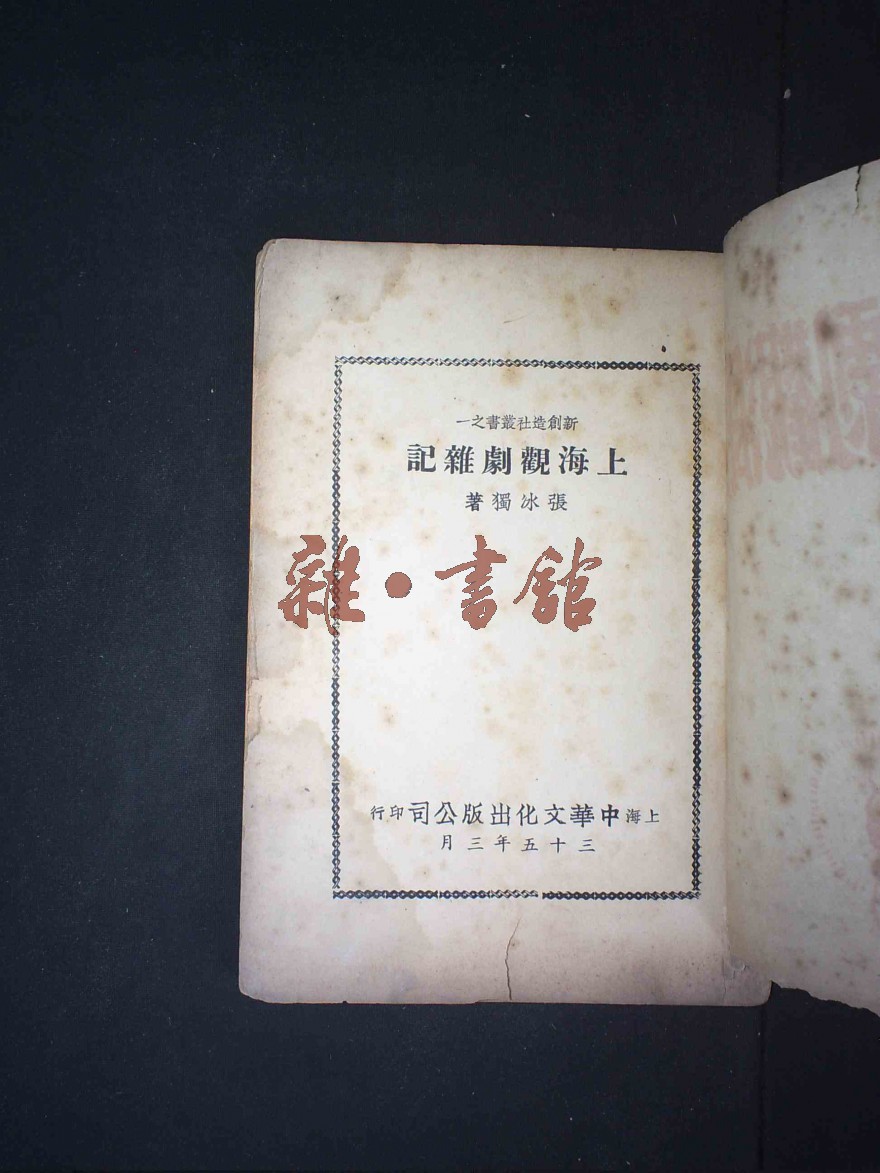 新創造社叢書之一
上海觀劇雜記
張冰獨著
雜·書館
上海中華文化出版公司印行
三十五年三月